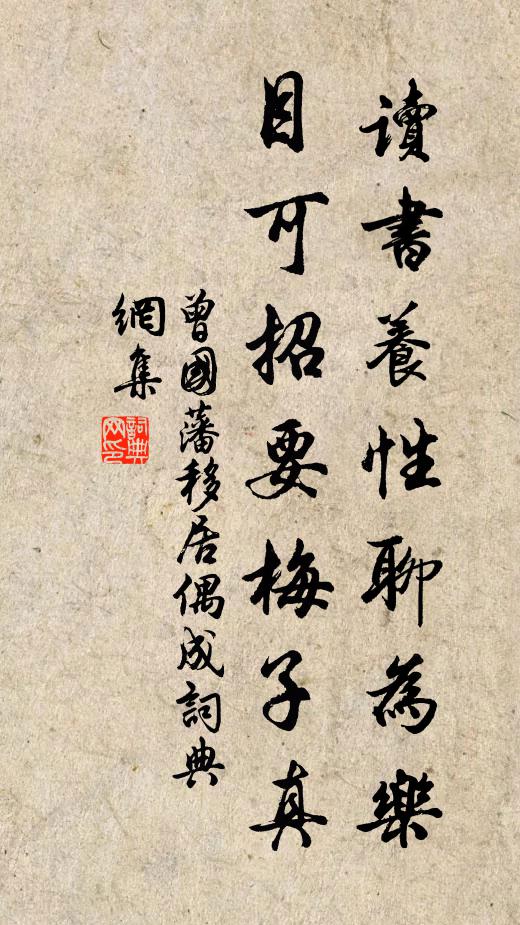 讀書養性聊為樂
目可招要梅子真
曾國藩移居偶成詞典
網集
詞典
网印